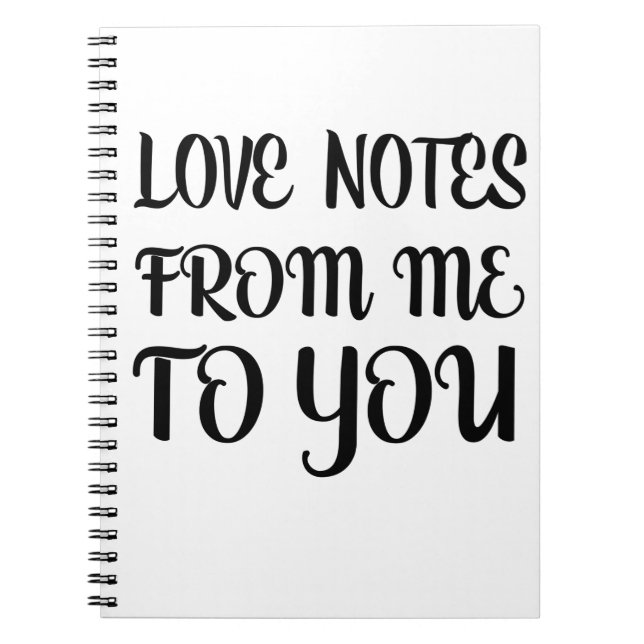 LOVE NOTES
FROM ME
TO YOU